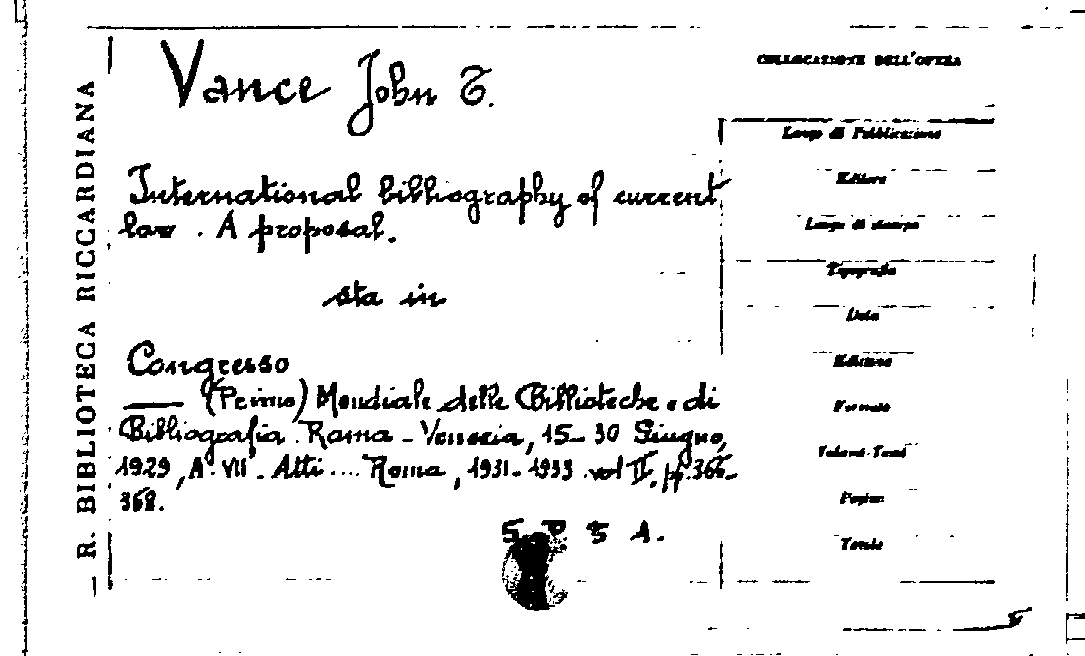 R. BIBLIOTECA RICCARDIANA
Vance John T.
International bibliography of current
law. A proposal.
sta in
Congresso
(Primo) Mondiale delle Biblioteche e di
Bibliografia. Roma - Venezia, 15-30 Giugno,
1929, A. VII. Atti .... Roma, 1931-1933 vol II, pp. 366-
368.
COLLOCAZIONE DELL'OPERA
Luogo di Pubblicazione
Editore
Luogo di stampa
Tipografia
Data
Edizione
Formato
Volumi-Tomi
Pagine
Tavole